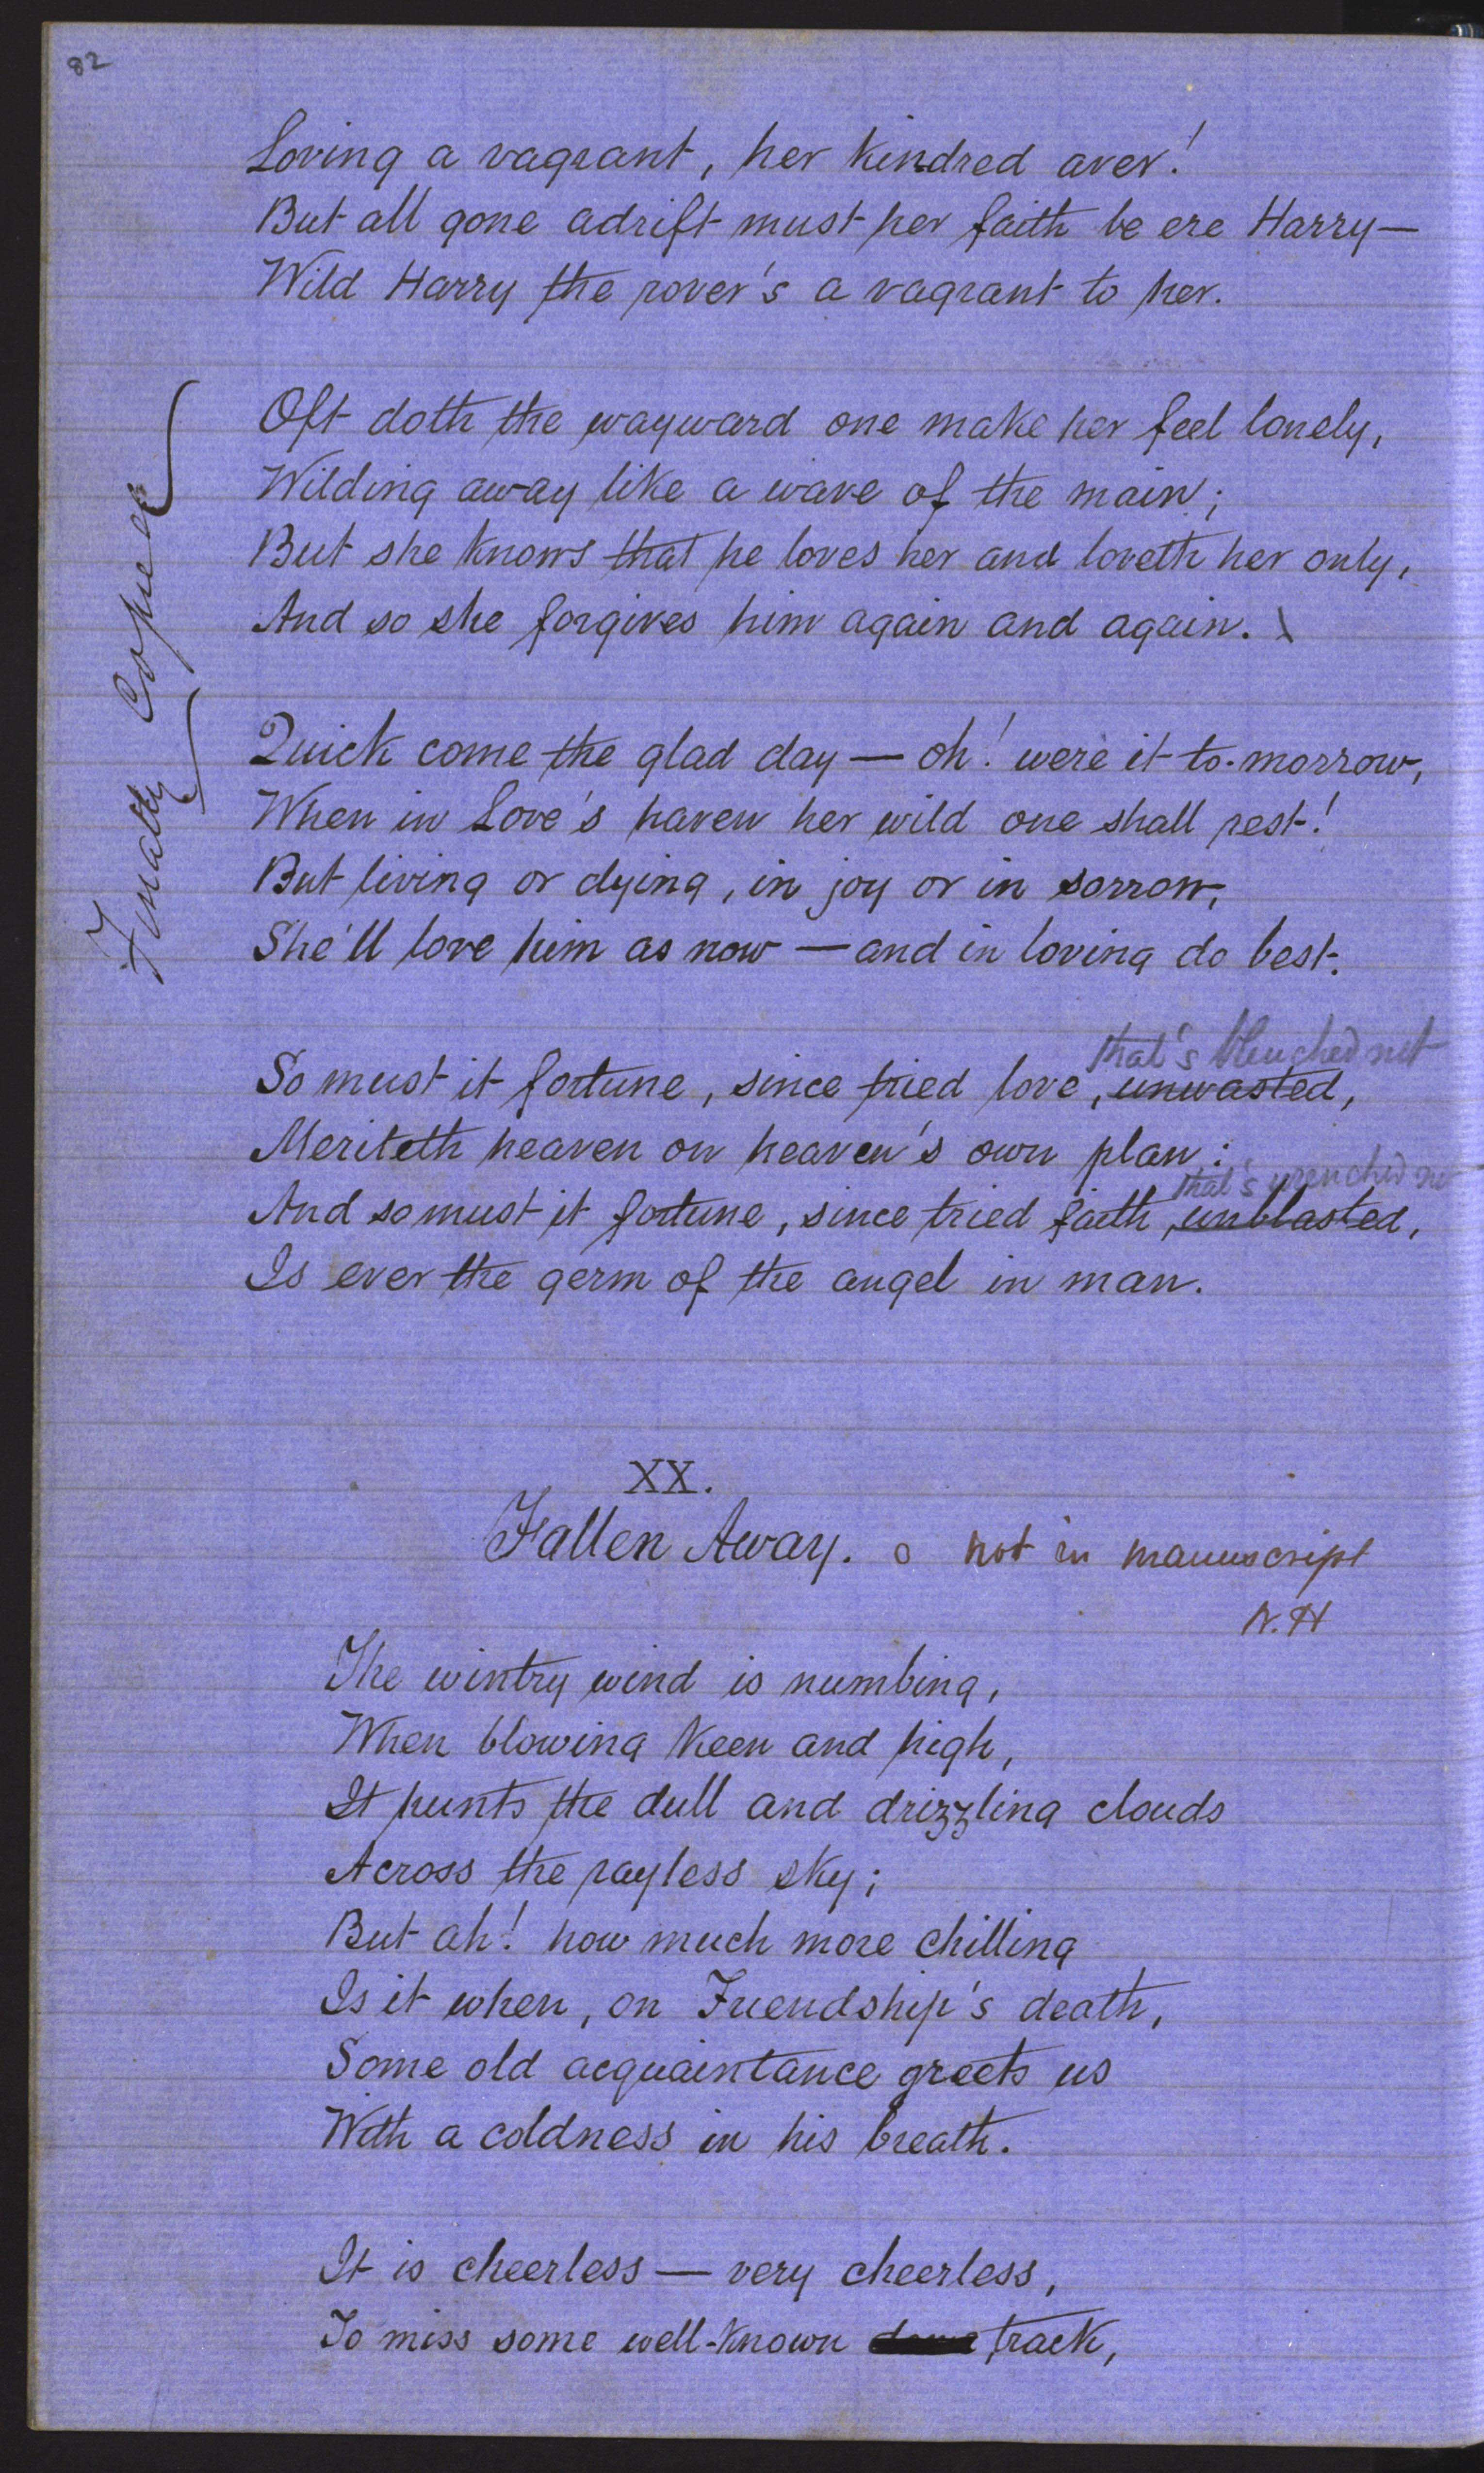 82
Loving a vagrant, her kindred aver!
But all gone adrift must her faith be ere Harry—
Wild Harry the rover's a vagrant to her.
Oft doth the wayward one make her feel lonely,
Wilding away like a wave of the main;
But she knows that he loves her and loveth her only,
And so she forgives him again and again. \
Finally Copied
Quick come the glad day — oh! were it to-morrow,
When in Love's haven her wild one shall rest!
But living or dying, in joy or in sorrow,
She'll love him as now — and in loving do best.
that's blenched not
So must it fortune, since tried love, unwasted,
Meriteth heaven on heaven's own plan:
that's wrenched not
And so must it fortune, since tried faith, unblasted,
Is ever the germ of the angel in man.
XX.
Fallen Away. o not in manuscript
N.H
The wintry wind is numbing,
When blowing keen and high,
It hunts the dull and drizzling clouds
Across the rayless sky;
But ah! how much more chilling
Is it when, on Friendship's death,
Some old acquaintance greets us
With a coldness in his breath.
It is cheerless — very cheerless,
To miss some well-known track,